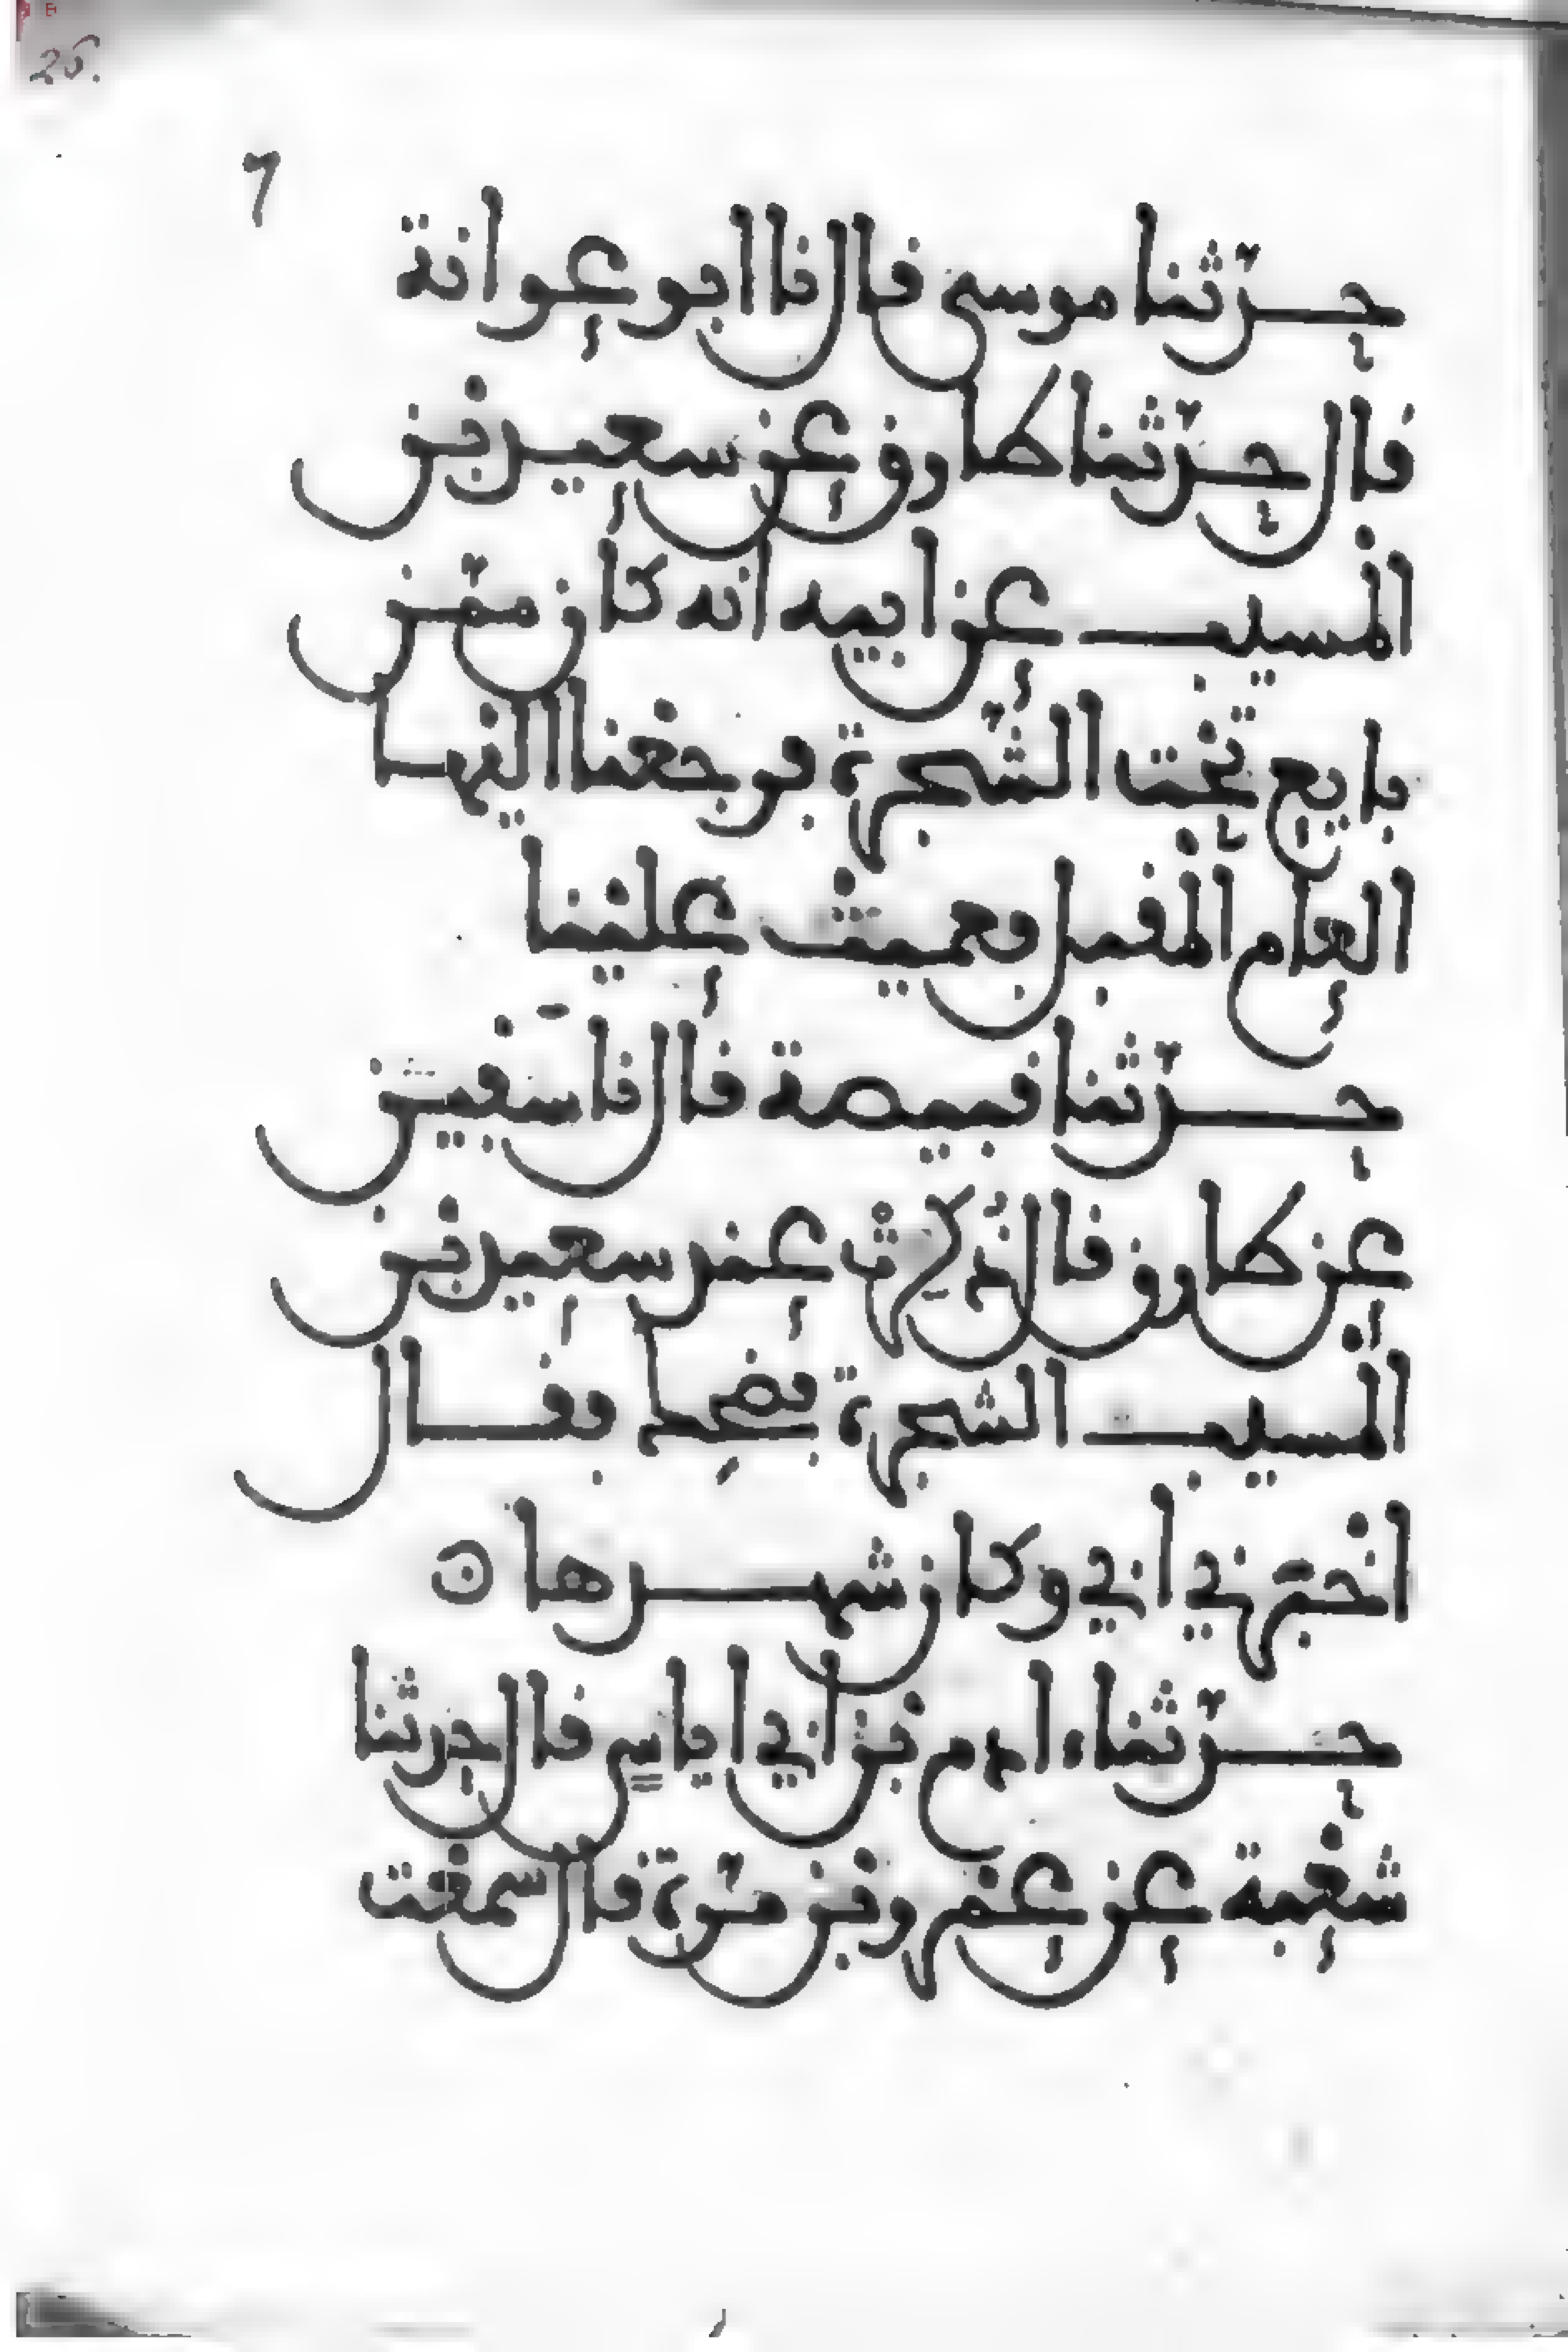 26.
٦
حدثنا موسى قال نا ابو عوانة
قال حدثنا طارق عن سعيد بن
المسيب عن ابيه انه كان ممن
بايع تحت الشجرة فرجعنا اليها
العام المقبل فعميت علينا
حدثنا قبيصة قال نا سفين
عن طارق قال ذكرت عند سعيد بن
المسيب الشجرة فضحك فقال
اخبرني ابي وكان شهدها
حدثنا ءادم بن ابي اياس قال حدثنا
شعبة عن عمرو بن مرة قال سمعت